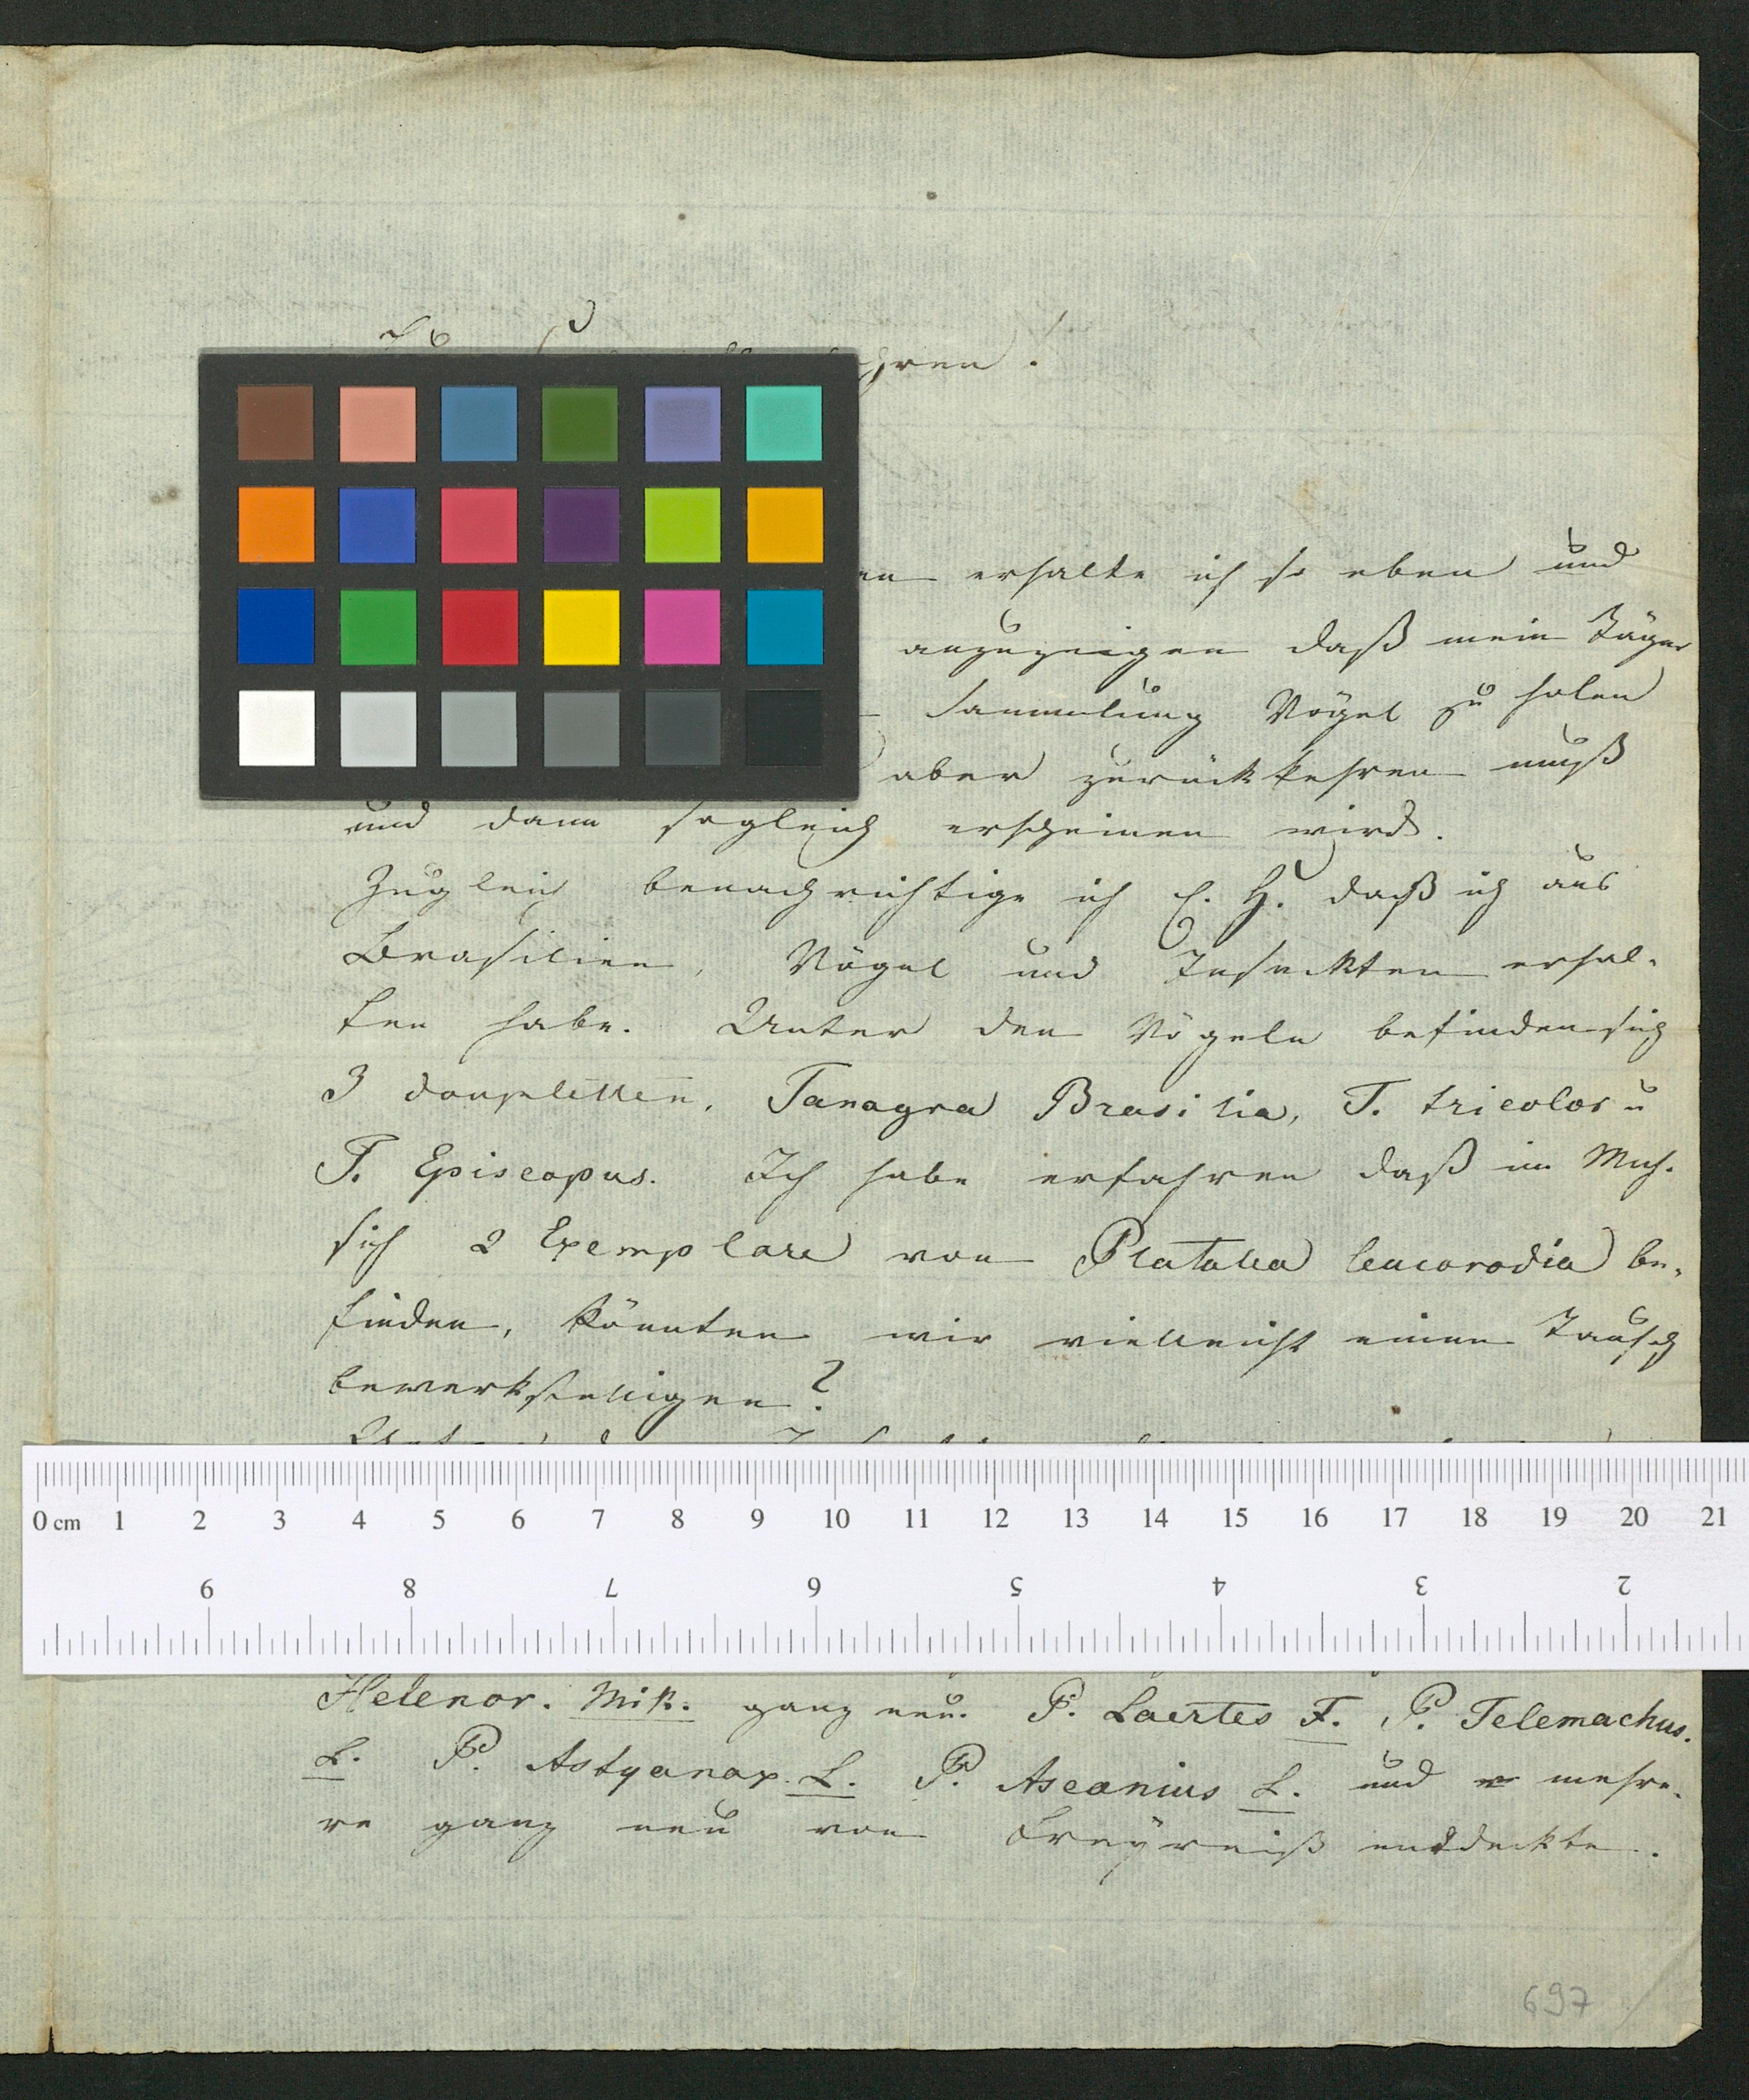 erhalte ich so eben und
anzuzeigen daß mein Jäger
Sammlung Vögel zu holen
aber zurückkehren muß
und dann sogleich erscheinen wird.
Zugleich benachrichtige ich E. H. daß ich aus
Brasilien, Vögel und Inseckten erhal-
ten habe. Unter den Vögeln befinden sich
3 doupletten, Tanagra Brasilia, T. tricolor u
T. Episcopus. Ich habe erfahren daß im Mus.
sich 2 Exemplare von Platalea leucorodia be-
finden, könnten wir vielleicht einen Tausch
bewerkstelligen?
0 cm 1 2 3 4 5 6 7 8 9 10 11 12 13 14 15 16 17 18 19 20 21
9 8 7 6 5 4 3 2
Helenor. Mik. ganz neu. P. Laertes F. P. Telemachus.
L. P. Astyanax. L. P. Ascanius L. und mehre-
re ganz neu von Freÿreiß entdeckte.
697